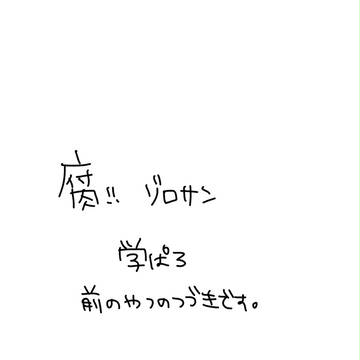 腐!! ゾロサン
学ぱろ
前のやつのつづきです。